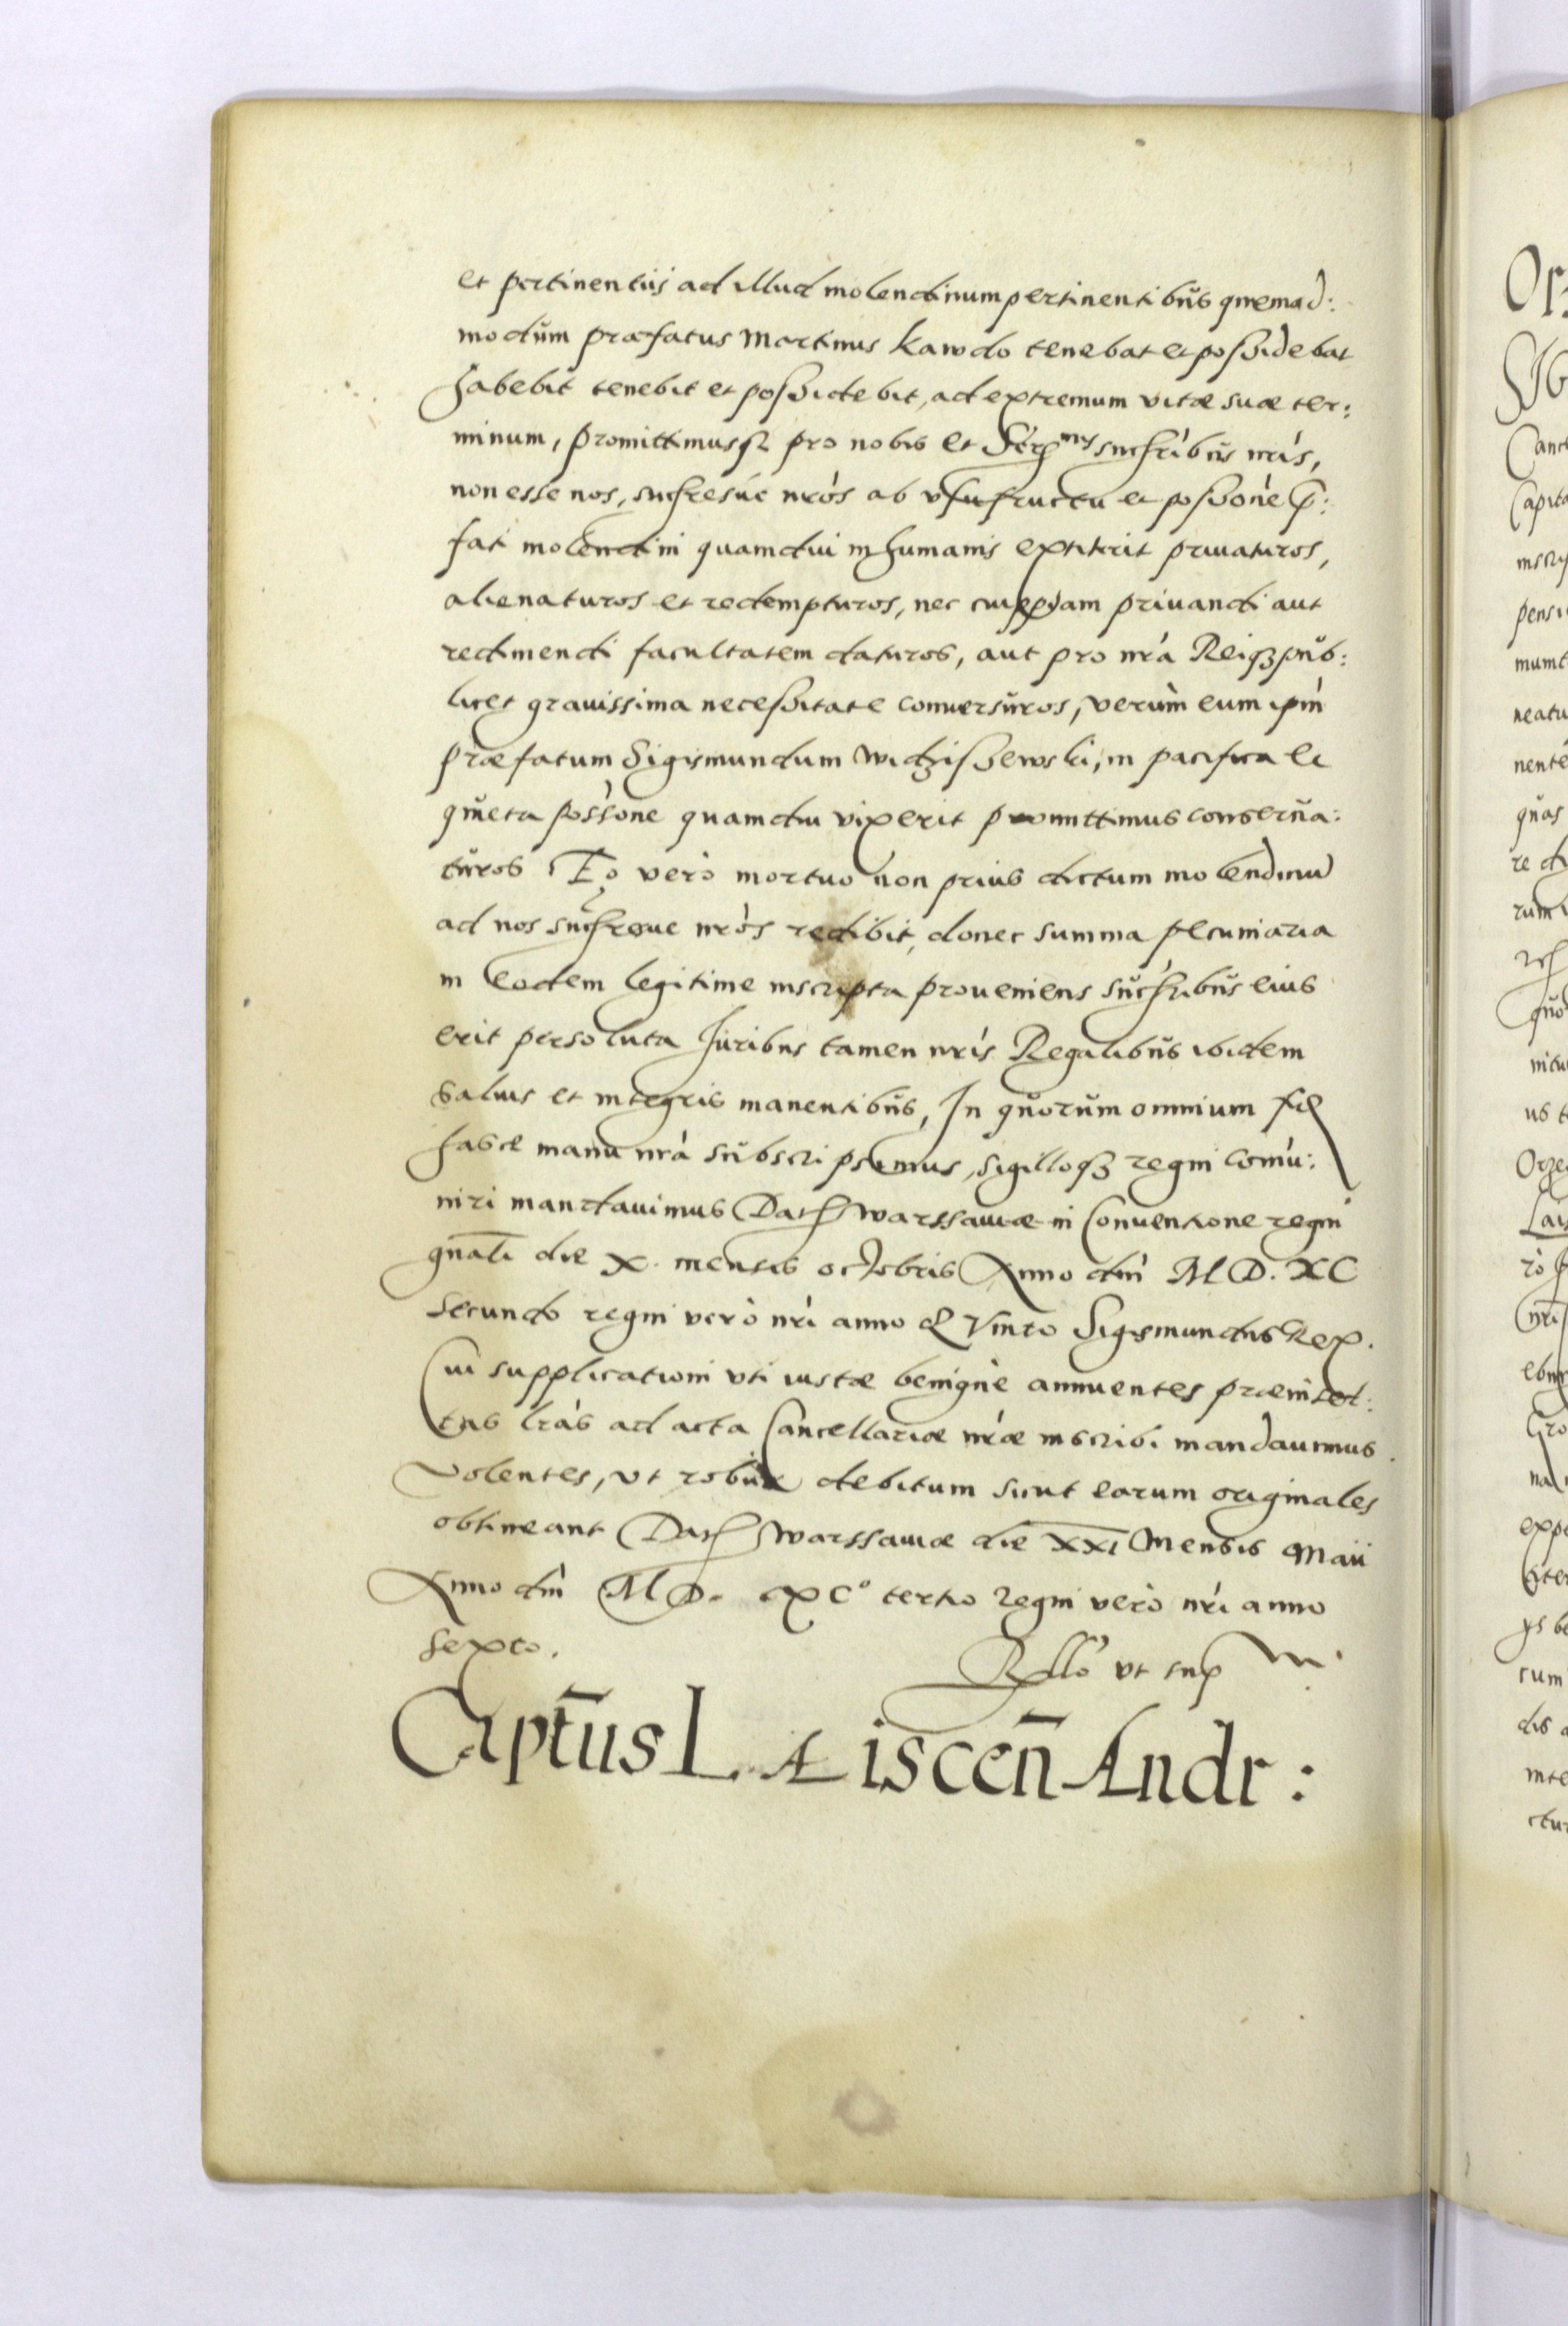 et pertinentiis ad illud molendinum pertinentibus quemad:
modum præfatus Martinus Kawdo tenebat et possidebat
habebit tenebit et possidebit, ad extremum vitæ suæ ter:
minum, promittimusqz pro nobis et Serē mis succribus nrís,
non esse nos, succresue nros ab vsufructu et possioné p̄:
fati molendini quamdiu in humanis extiterit priuaturos,
alienaturos et redempturos, nec cuipiam priuandi aut
redimendi facultatem daturos, aut pro nrá Reiqz pub:
licæ grauissima necessitate conuersuros, verùm eum ipm̄
præfatum Sigismundum Widziszewski, in pacifica et
quieta possone quamdiu vixerit promittimus conserua:
turos Eo vero mortuo non prius dictum molendinū
ad nos succresue nros redibit, donec summa pecuniaria
in eodem legitime inscripta proueniens succribus eius
erit persoluta Juribus tamen nrís Regalibus ibidem
saluis et integris manentibus, In quorum omnium fid
hasce manu nrá subscripsimus, sigilloqz regni comú:
niri mandauimus Dat Warssauiæ in Conuentione regni
gnāli die X. mensis octobris Anno dnī M D. XC
secundo regni verò nrí anno Quinto Sigismundus Rex.
Cui supplicationi vti iustæ benignè annuentes præinser:
tas lras ad acta Cancellariæ nræ inscribi mandauimus.
Volentes, vt robur debitum sicut earum originales
obtineant Dat Warssauiæ die XXI Mensis Maii
Anno dnī M D. XC° tertio Regni verò nrí anno
sexto.
Rllō vt sup
Captūs L Æ iscen̄ Andr: